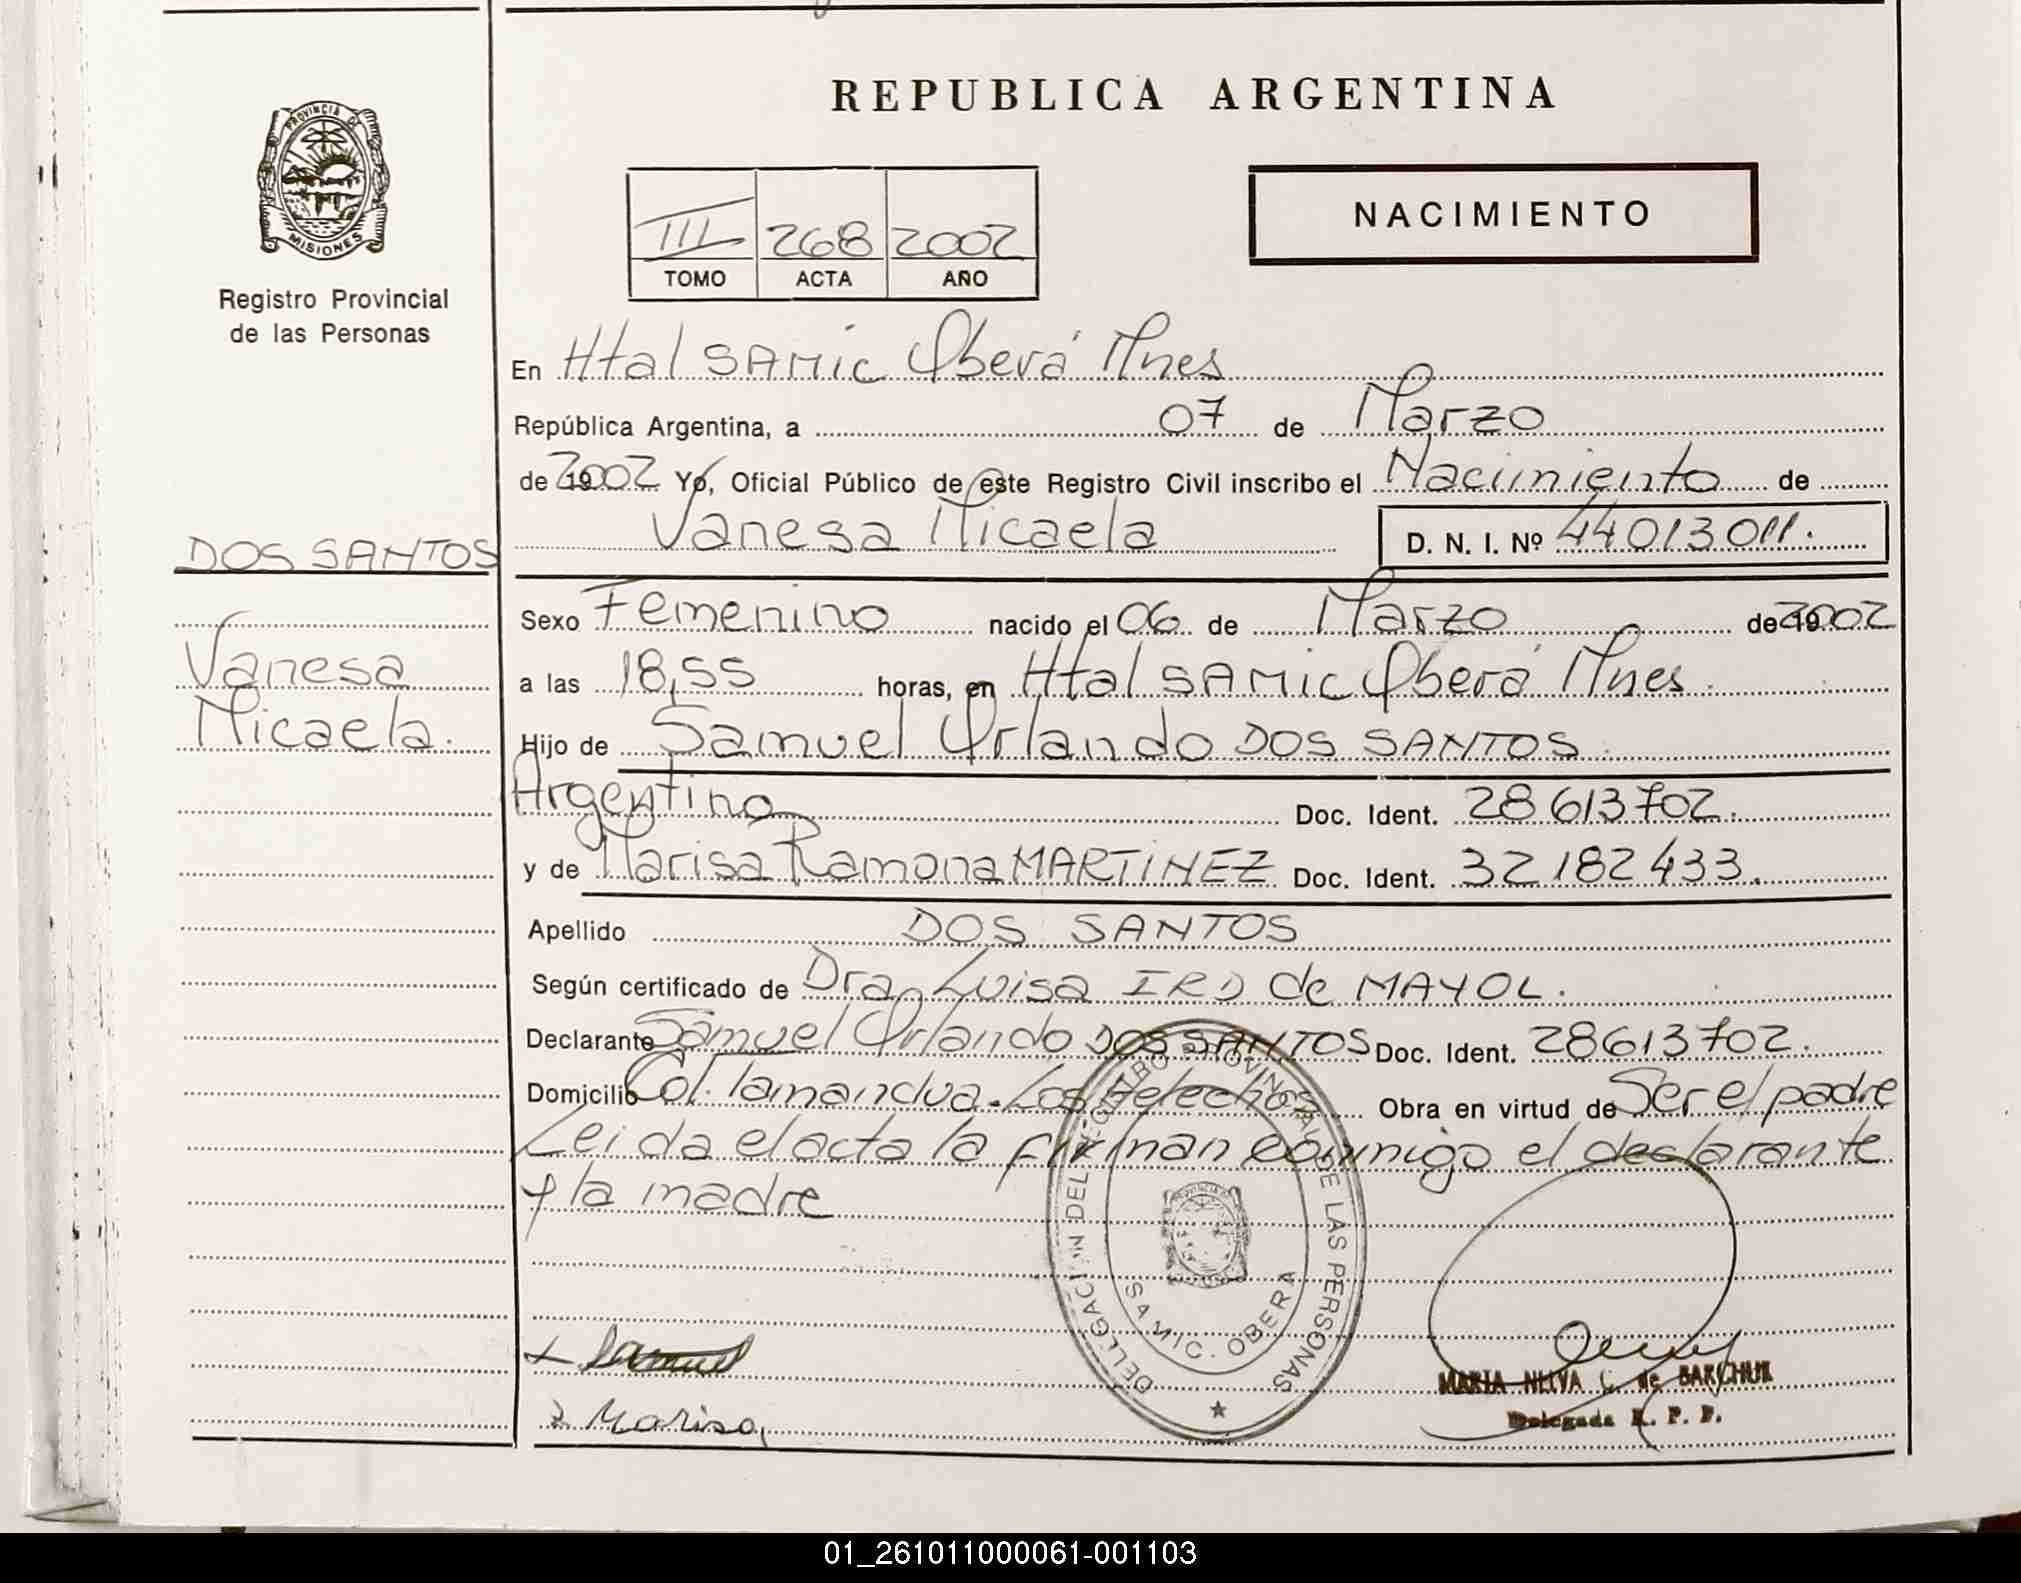 REPUBLICA ARGENTINA
PROVINCIA DE
MISIONES
Registro Provincial
de las Personas
III 268 2002
TOMO ACTA AÑO
NACIMIENTO
En Htal SAMIC Oberá Mnes
República Argentina, a 07 de Marzo
de 2002 Yo, Oficial Público de este Registro Civil inscribo el Nacimiento de
Vanesa Micaela D. N. I. Nº 44013011.
DOS SANTOS
Vanesa
Micaela.
Sexo Femenino nacido el 06 de Marzo de 2002
a las 18,55 horas, en Htal SAMIC Oberá Mnes.
Hijo de Samuel Orlando DOS SANTOS.
Argentino Doc. Ident. 28613702.
y de Marisa Ramona MARTINEZ Doc. Ident. 32182433.
Apellido DOS SANTOS
Según certificado de Dra Luisa de MAYOL.
Declarante Samuel Orlando DOS SANTOS Doc. Ident. 28613702.
Domicilio Col. Tamandua. Los Helechos Obra en virtud de Ser el padre
Leida el acta la firman conmigo el declarante
y la madre
DELEGACION DEL REGISTRO PROVINCIAL DE LAS PERSONAS
SAMIC. OBERA
Samuel
Marisa
MARIA C. de
Delegada R. P. P.
01_261011000061-001103